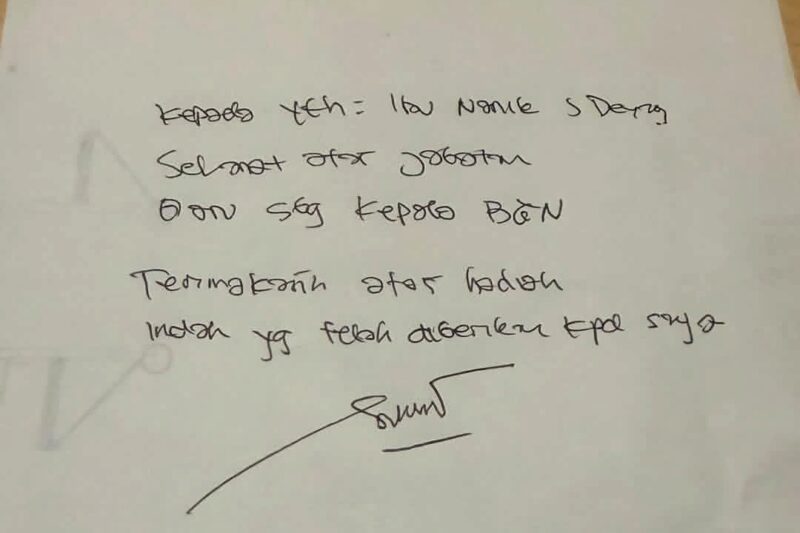 Kepada Yth = Ibu Nanik S Deyng
Selamat atas jabatan
sbg Kepala BGN
Terimakasih atas hadiah
Indah yg telah diberikan kpd saya